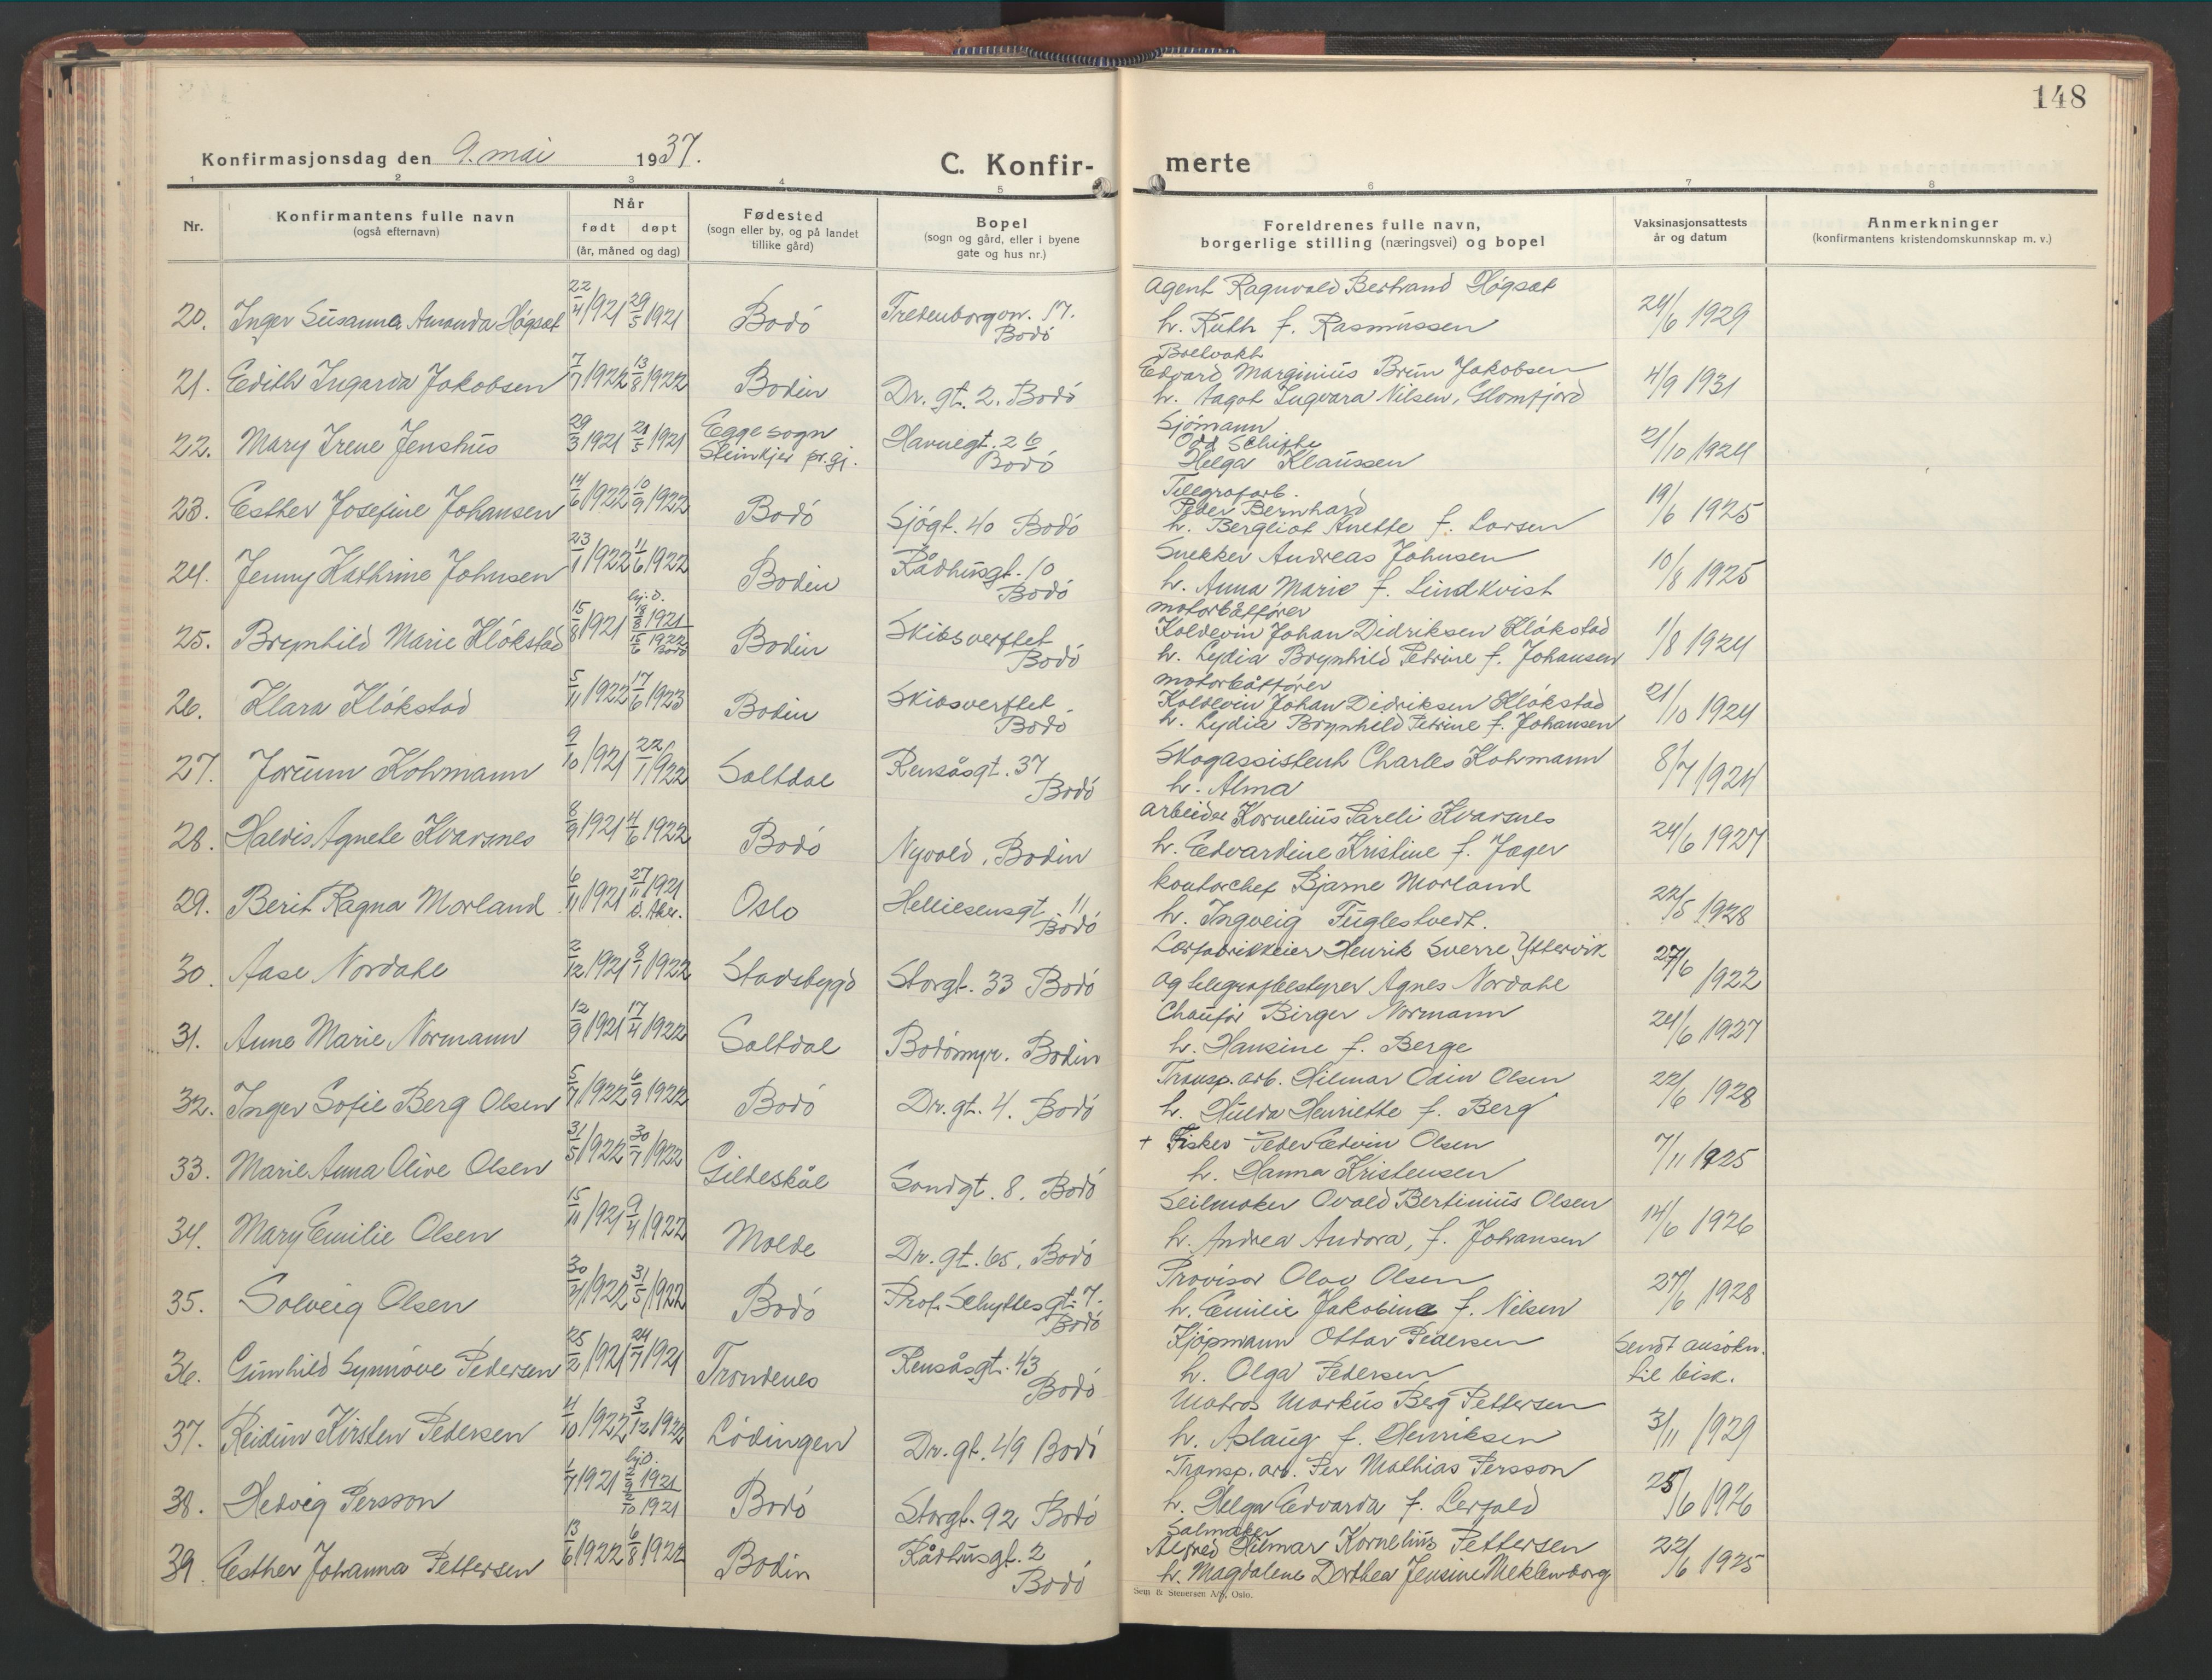 148
Konfirmasjonsdag den 9. mai 1937.
C. Konfir-merte
1 2 3 4 5 6 7 8
Nr.
Konfirmantens fulle navn
(også efternavn)
Når
født døpt
(år, måned og dag)
Fødested
(sogn eller by, og på landet
tillike gård)
Bopel
(sogn og gård, eller i byene
gate og hus nr.)
Foreldrenes fulle navn,
borgerlige stilling (næringsvei) og bopel
Vaksinasjonsattests
år og datum
Anmerkninger
(konfirmantens kristendomskunnskap m. v.)
20. Inger Susanna Amanda Høgset 22/4 1921 29/5 1921 Bodø Fredenborgv. 17. Bodø
Agent Ragnvald Bertrand Høgset
h. Ruth f. Rasmussen 29/6 1929
21. Edith Ingarda Jakobsen 7/7 1922 13/8 1922 Bodin Dr. gt. 2. Bodø
Edvard Marginius Brun Jakobsen
h. Aagot Ingvara Nilsen, Glomfjord 4/9 1931
22. Mary Irene Jenshus 29/3 1921 21/5 1921 Egge sogn Steinkjer pr.gj. Havnegt. 26 Bodø
Sjømann
Odd Schipke
Helga Klaussen 21/10 1924
23. Esther Josefine Johansen 14/6 1922 10/9 1922 Bodø Sjøgt. 40 Bodø
Telegrafarb.
Peder Bernhard
h. Bergliot Anette f. Larsen 19/6 1925
24. Jenny Kathrine Johnsen 23/1 1922 11/6 1922 Bodin Rådhusgt. 10 Bodø
Snekker Andreas Johnsen
h. Anna Marie f. Lindkvist 10/8 1925
25. Brynhild Marie Kløkstad 15/8 1921 hj.d. 18/8 1921 15/6 1922 Bodø Bodin Skibsverftet Bodø
motorbåtfører
Koldevin Johan Didriksen Kløkstad
h. Lydia Brynhild Petrine f. Johansen 1/8 1924
26. Klara Kløkstad 5/11 1922 17/6 1923 Bodin Skibsverftet Bodø
motorbåtfører
Koldevin Johan Didriksen Kløkstad
h. Lydia Brynhild Petrine f. Johansen 21/10 1924
27. Jorunn Kohmann 9/10 1921 22/1 1922 Saltdal Rensåsgt. 37 Bodø
Skogassistent Charles Kohmann
h. Alma 8/7 1924
28. Halvis Agnete Kvarsnes 8/9 1921 4/6 1922 Bodø Nyvold, Bodin
arbeider Kornelius Pareli Kvarsnes
h. Edvardine Kristine f. Jæger 24/6 1927
29. Berit Ragna Morland 6/11 1921 27/11 1921 Ø. Aker. Oslo Helliesensgt 11. Bodø
kontorchef Bjarne Morland
h. Ingveig Fuglestvedt. 22/5 1928
30. Aase Nordahl 2/12 1921 8/1 1922 Stadsbygd Storgt. 33 Bodø
Lærfabrikkeier Henrik Sverre Yttervik
og telegrafbestyrer Agnes Nordahl 27/6 1922
31. Anne Marie Normann 12/9 1921 17/4 1922 Saltdal Bodømyr. Bodin
Chaufør Birger Normann
h. Hansine f. Berge 24/6 1927
32. Inger Sofie Berg Olsen 5/7 1922 6/9 1922 Bodø Dr. gt. 4. Bodø
Transp. arb. Hilmar Odin Olsen
h. Hulda Henriette f. Berg 22/6 1928
33. Marie Anna Olive Olsen 31/5 1922 30/7 1922 Gildeskål Sandgt. 8. Bodø
+ Fisker Peder Edvin Olsen
h. Hanna Kristensen 7/11 1925
34. Mary Emilie Olsen 15/11 1921 9/4 1922 Molde Dr. gt. 65, Bodø
Seilmaker Ovald Bertinius Olsen
h. Andrea Andora, f. Johansen 14/6 1926
35. Solveig Olsen 30/4 1922 31/5 1922 Bodø Prof. Schyttes gt. 7. Bodø
Provisor Olav Olsen
h. Emilie Jakobine f. Nilsen 27/6 1928
36. Gunhild Synnøve Pedersen 25/2 1921 24/7 1921 Trondenes Rensåsgt. 43 Bodø
Kjøpmann Ottar Pedersen
h. Olga Pedersen Sendt ansøkn. til bisk.
37. Reidun Kirsten Pedersen 4/10 1922 3/12 1922 Lødingen Dr. gt. 49 Bodø
Matros Markus Berg Pettersen
h. Aslaug f. Henriksen 3/11 1929
38. Hedvig Persson 1/7 1921 hj.d. 2/9 1921 2/10 1921 Bodø Storgt. 92 Bodø
Transp. arb. Per Mathias Persson
h. Helga Edvarda f. Lerfald 25/6 1926
39. Esther Johanna Pettersen 13/6 1922 6/8 1922 Bodin Rådhusgt. 2 Bodø
Salmaker
Alfred Hilmar Kornelius Pettersen
h. Magdalene Dorthea Jensine Meklenborg 22/6 1925
Sem & Stenersen A/S, Oslo.